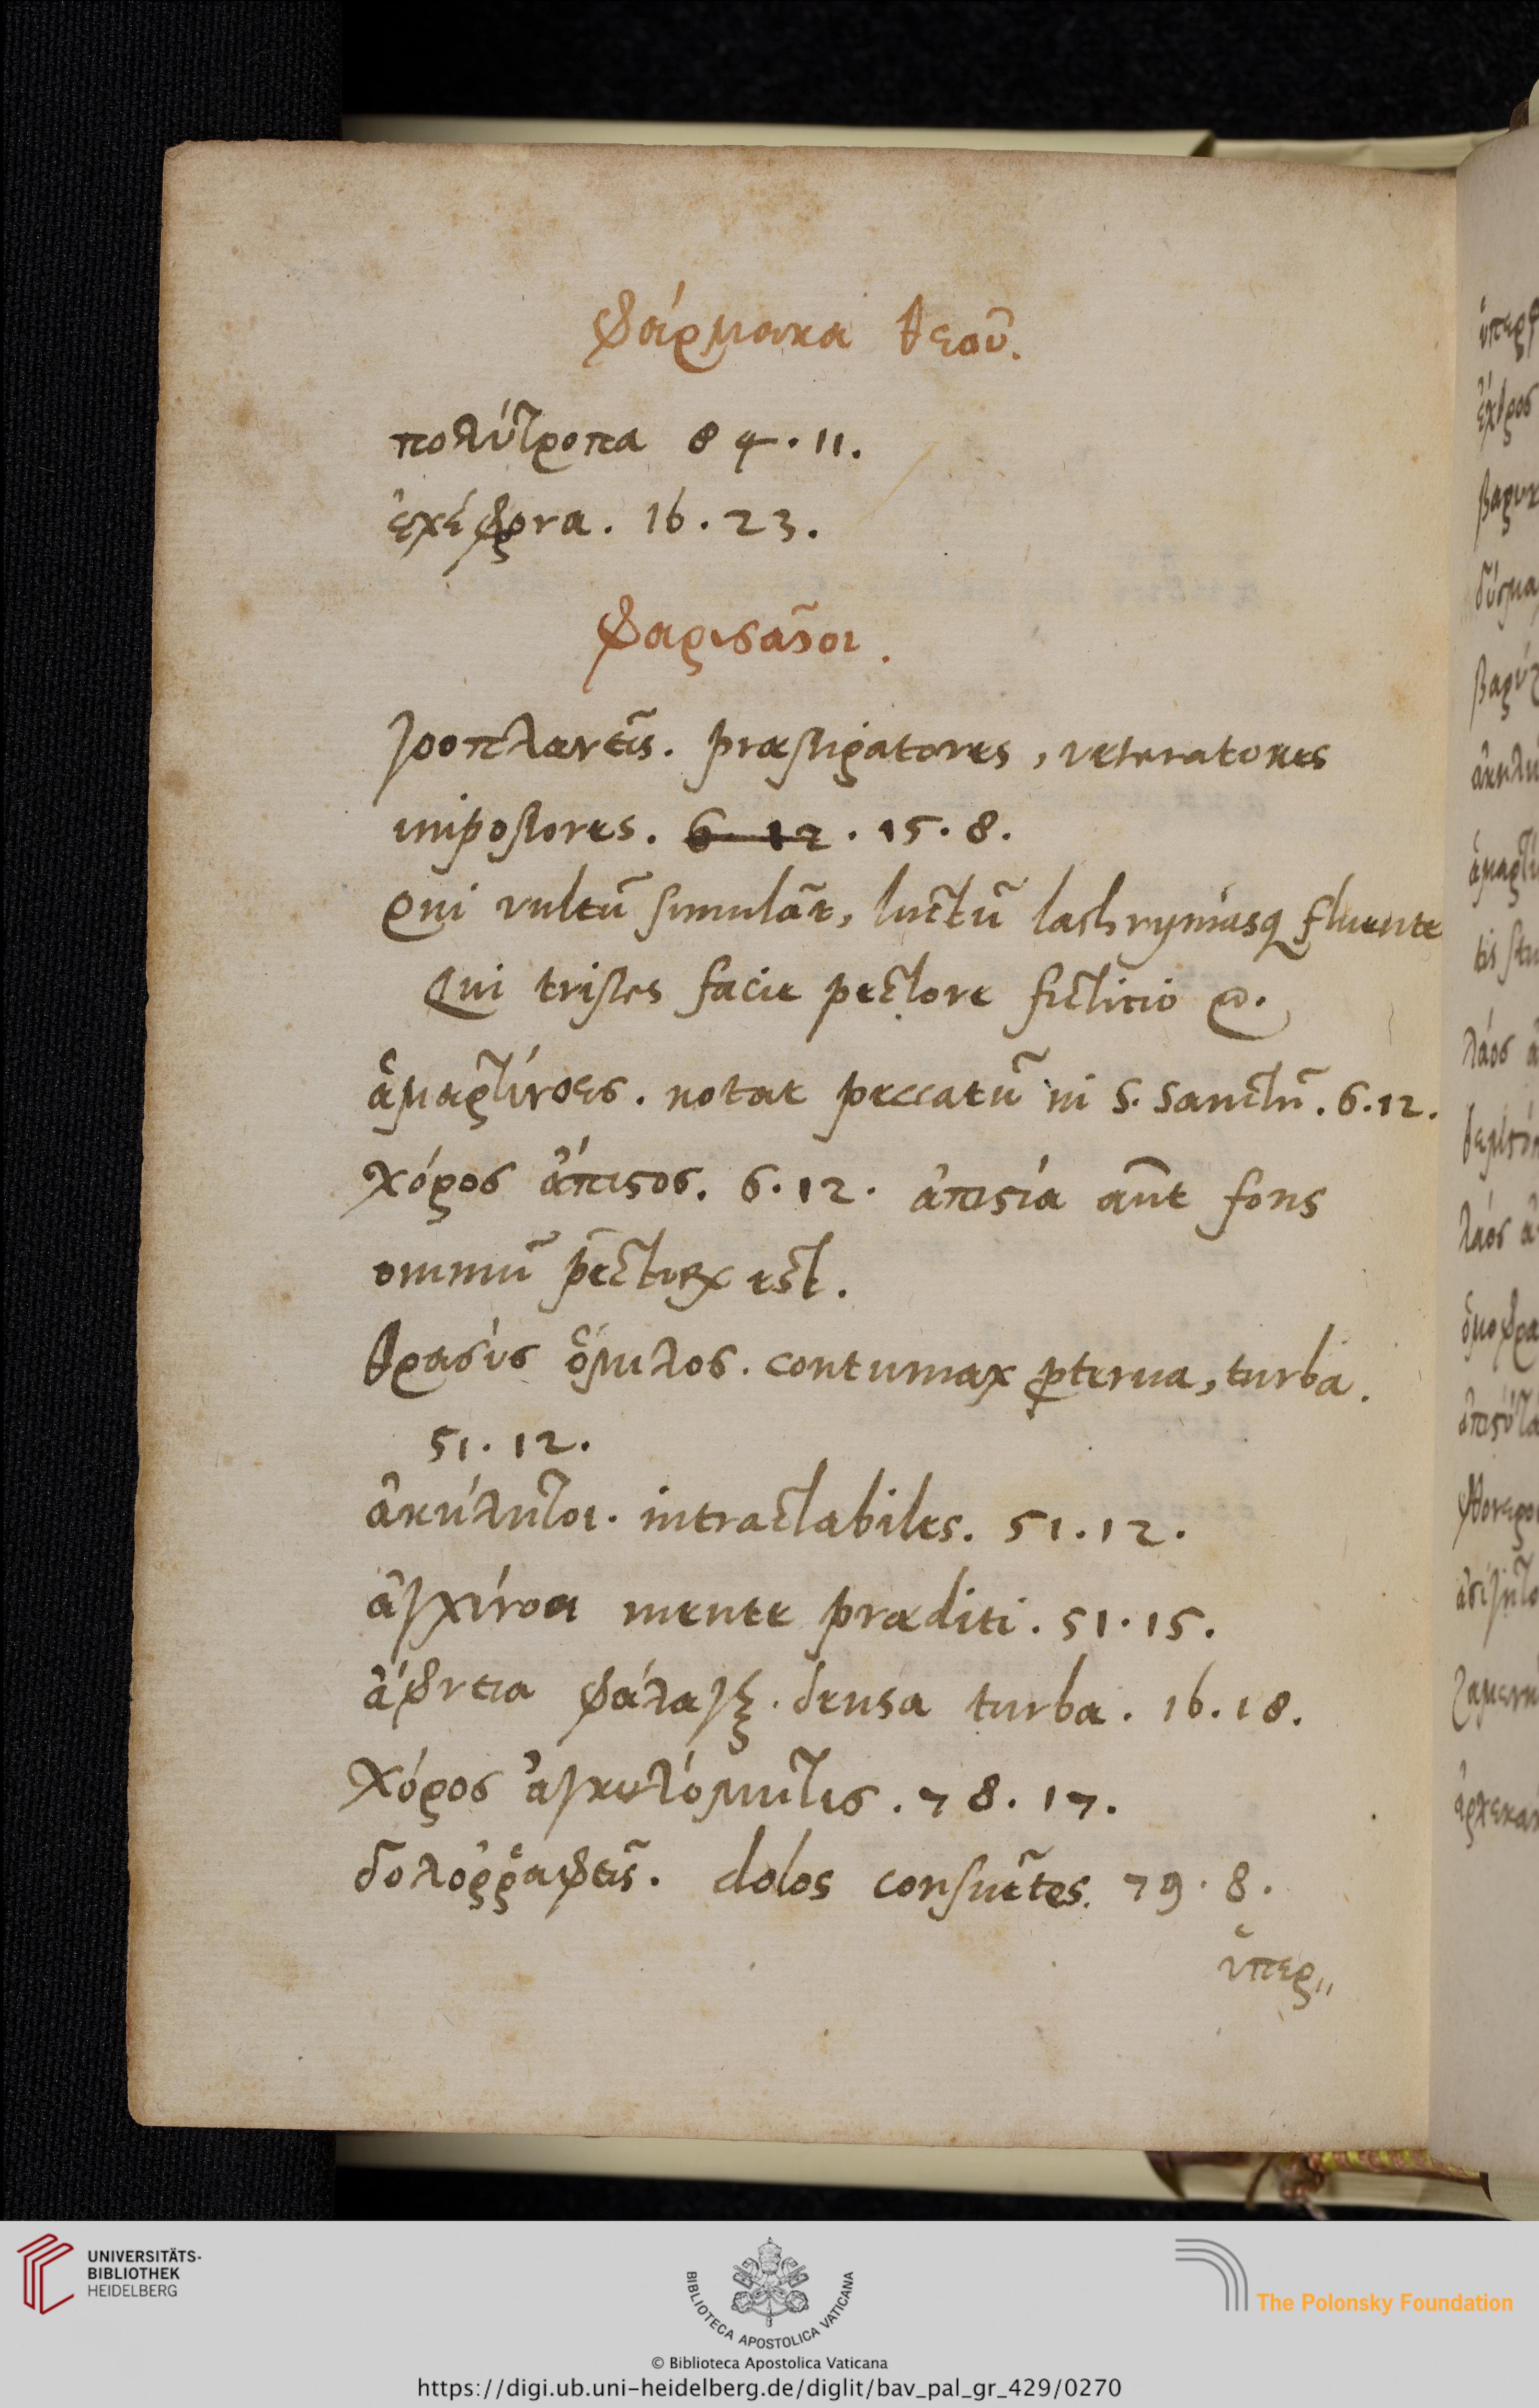 φάρμακα θεοῦ.
πολύτροπα 84.11.
ἐχέφρονα. 16.23.
φαρισαῖοι.
νοοπλανεῖς. præstigatores, veteratores
impostores. 6 12. 15.8.
Qui vultũ simulãt, luctũ lachrymasq fluente
Qui tristes facie pectore fictitio
ἁμαρτίνοες. notat peccatũ in S. Sanctũ. 6.12.
χόρος ἄπιστος. 6.12. ἀπιστία aũt fons
omniũ est.
θρασὺς ὅμιλος. contumax pterua, turba.
51.12.
ἀκήλητοι. intractabiles. 51.12.
ἀγχίνοοι mente præditi. 51.15.
ἄφνεια φάλαγξ. densa turba. 16.18.
χόρος ἀγκυλόμητις. 78.17.
δολοῤῥαφεῖς. dolos consuẽtes. 79.8.
ὑπερ,,
ὑπερ
ἐχθρος
λάος
λάος
UNIVERSITÄTS-
BIBLIOTHEK
HEIDELBERG
BIBLIOTECA APOSTOLICA VATICANA
The Polonsky Foundation
© Biblioteca Apostolica Vaticana
https://digi.ub.uni-heidelberg.de/diglit/bav_pal_gr_429/0270